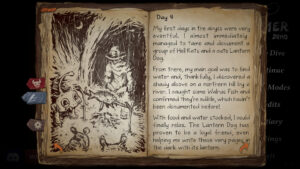 Day 4
My first days in the abyss were very
eventful. I almost immediately
managed to tame and document a
group of Hell Rats and a cute Lantern
Dog.
From there, my main goal was to find
water and, thankfully, I discovered a
shady alcove on a northern hill by a
river. I caught some Walrus Fish and
confirmed they're edible, which hadn't
been documented before!
With food and water stocked, I could
finally relax. The Lantern Dog has
proven to be a loyal friend, even
helping me write these very pages in
the dark with its lantern.
Dive
Modes